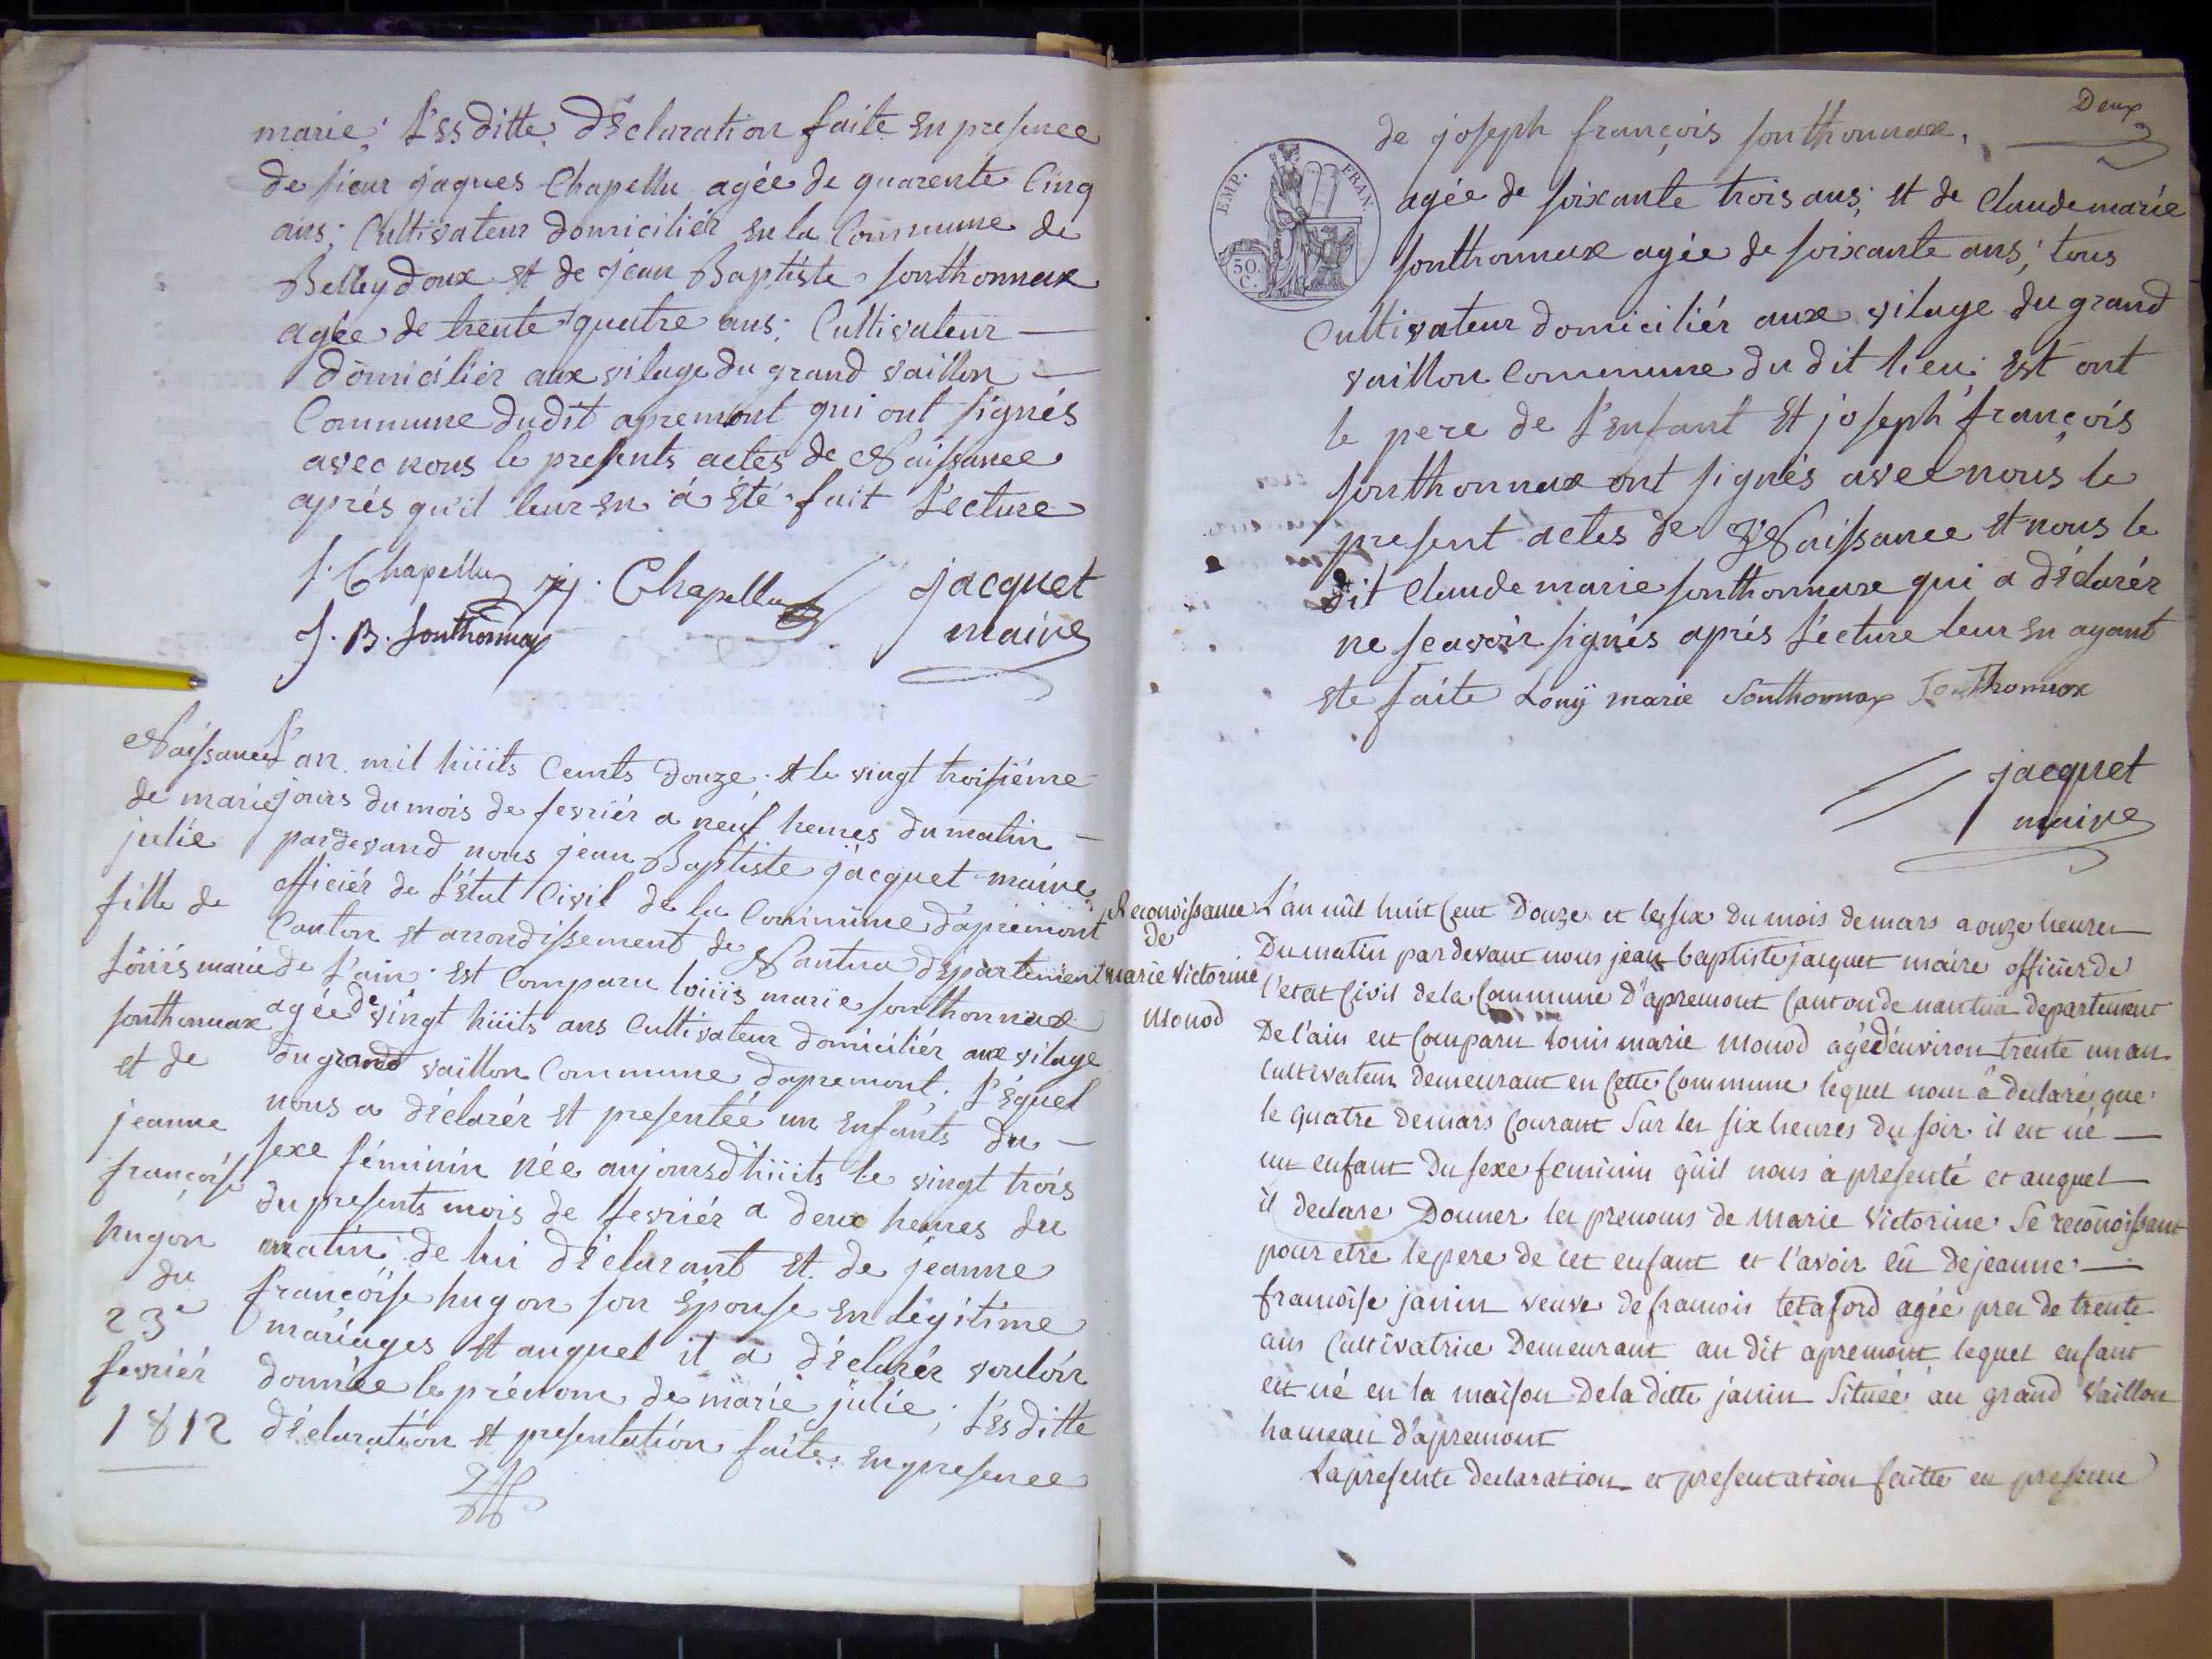 marie; l'es ditte déclaration faite en presence
de sieur jaques Chapellu agée de quarente Cinq
ans; Cultivateur domiciliér en la Commune de
Belleydoux et de jean Baptiste sonthonnax
agée de trente quatre ans; Cultivateur
domiciliér aux vilage du grand vaillon
Commune dudit apremont qui ont signés
avec nous le presents actes de Naissance
aprés qu'il leur en á été fait l'ecture
j. Chapellu j. Chapellu jacquet
J. B. Sonthonnax maire
Naissance
de marie
julie
fille de
loüis marie
sonthonnax
et de
jeanne
françoise
hugon
du
23e
fevriér
1812
L'an mil hüits Cents douze; et le vingt troisiéme
jours du mois de fevriér a neuf heures du matin
pardevand nous jean Baptiste jacquet maire
officiér de l'état Civil de la Commune d'apremont
Canton et arrondissement de Nantua département
de l'ain; est Comparu loüis marie sonthonnax
agée de vingt hüits ans Cultivateur domiciliér aux vilage
du grand vaillon Commune dapremont; l'équel
nous a déclarér et presentée un enfants du
sexe féminin née aujoursdhüits le vingt trois
du presents mois de fevriér a deux heures du
matin; de lui déclarant et de jeanne
françoise hugon son épouse en légitime
mariages et auquel it a déclarér vouloir
donnée le prénom de marie julie; l'es ditte
déclaration et presentation faite en presence
Deux
de joseph françois sonthonnax,
EMP. FRAN.
50. C.
agée de soixante trois ans; et de Claude marie
sonthonnax agée de soixante ans; tous
Cultivateur domiciliér aux vilage du grand
vaillon Commune du dit lieu; est ont
le pere de l'enfant et joseph françois
sonthonnax ont signés avec nous le
present actes de Naissance et nous le
dit Claude marie sonthonnax qui a déclarér
ne scavoir signés aprés l'ecture leur en ayant
ete faite Louÿ marie Sonthonnax Sonthonnax
jacquet
maire
Reconoissance
de
marie victorine
Monod
L'an mil huit Cent Douze et le six du mois de mars a onze heures
Du matin par devant nous jean baptiste jacquet maire officier de
l'etat Civil de la Commune d'apremont Canton de nantua departement
De l'ain est Comparu Louis marie Monod agé d'environ trente un an
Cultivateur demeurant en Cette Commune lequel nous a declaré que
le quatre demars Courant Sur les six heures du soir il est né
un enfant Du sexe feminin qu'il nous a presenté et auquel
il declare Donner les prenoms de Marie Victorine Se reconoissant
pour etre le pere de cet enfant et l'avoir eû De jeanne
francoise janin veuve de francois tetaford agée pres de trente
ans Cultivatrice Demeurant au dit apremont lequel enfant
est né en la maison Dela ditte janin Située au grand Vaillon
hameau d'apremont
La presente declaration et presentation faitte en presence